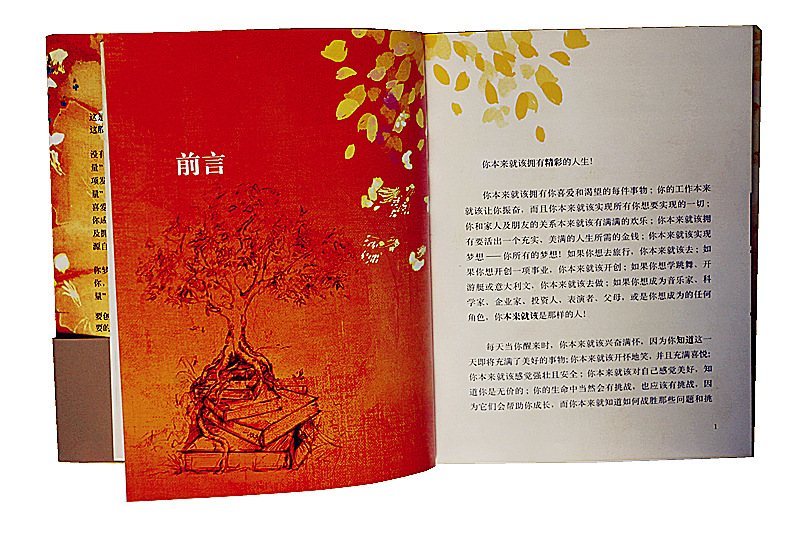 这是
没有
量”
项发
量”
喜爱
你或
及拥
源自
你梦
你，
量”
要创
要的
前言
你本来就该拥有精彩的人生！
你本来就该拥有你喜爱和渴望的每件事物；你的工作本来
就该让你振奋，而且你本来就该实现所有你想要实现的一切；
你和家人及朋友的关系本来就该有满满的欢乐；你本来就该拥
有要活出一个充实、美满的人生所需的金钱；你本来就该实现
梦想——你所有的梦想！如果你想去旅行，你本来就该去；如
果你想开创一项事业，你本来就该开创；如果你想学跳舞、开
游艇或意大利文，你本来就该去做；如果你想成为音乐家、科
学家、企业家、投资人、表演者、父母，或是你想成为的任何
角色，你本来就该是那样的人！
每天当你醒来时，你本来就该兴奋满怀，因为你知道这一
天即将充满了美好的事物；你本来就该开怀地笑，并且充满喜悦；
你本来就该感觉强壮且安全；你本来就该对自己感觉美好，知
道你是无价的；你的生命中当然会有挑战，也应该有挑战，因
为它们会帮助你成长，而你本来就知道如何战胜那些问题和挑
1